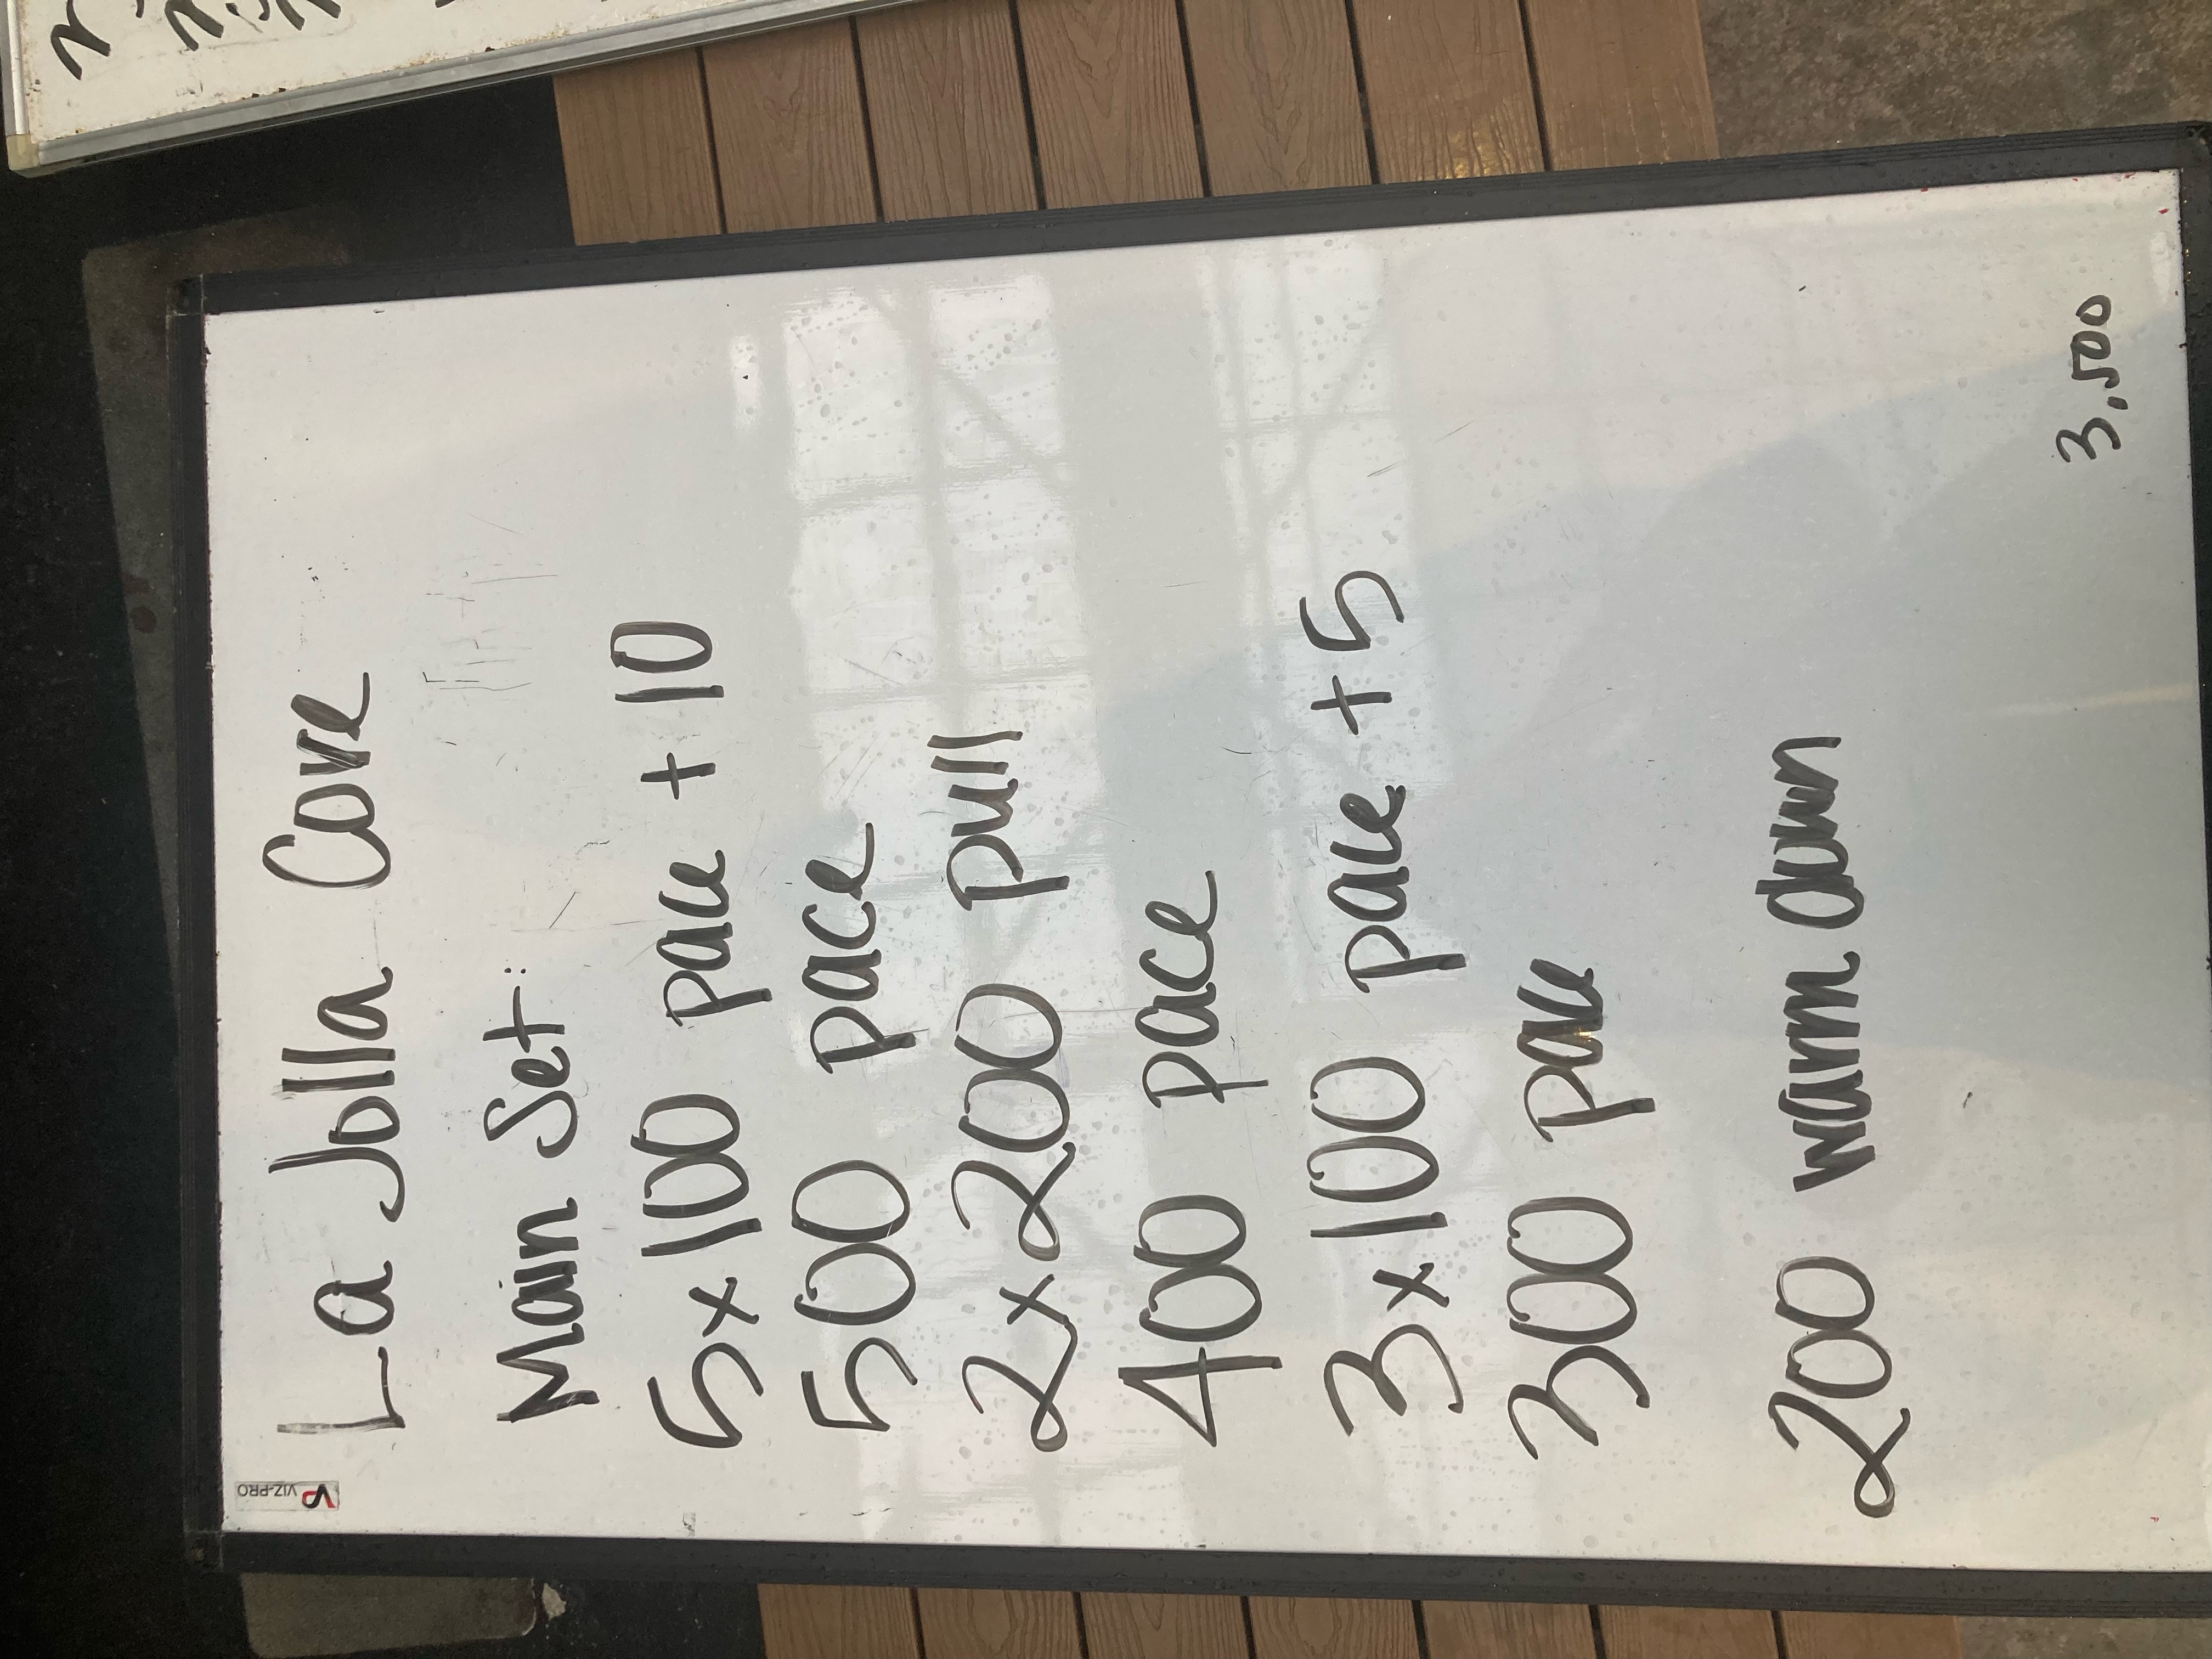 VIZ-PRO
La Jolla Cove
Main Set:
5x100 pace + 10
500 pace
2x200 pull
400 pace
3x100 pace + 5
300 pace
200 warm down
3,500